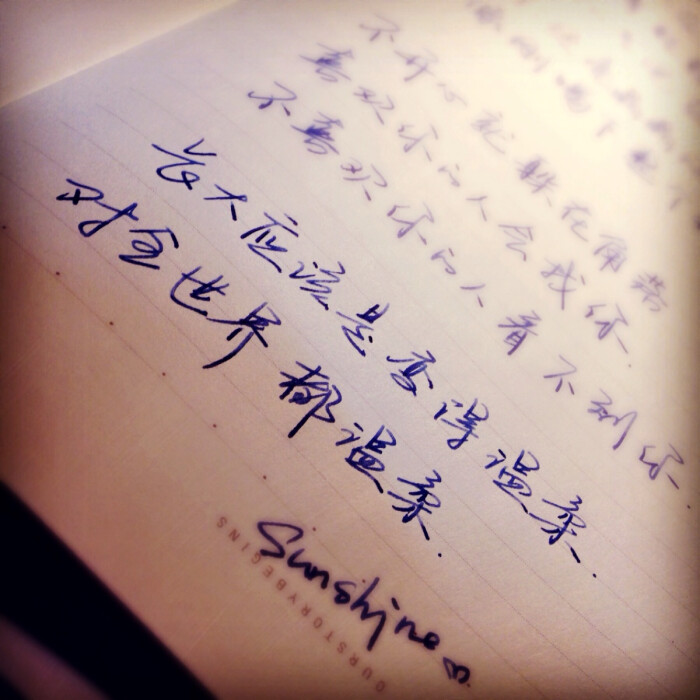 不开心就躲在角落
喜欢你的人会找你.
不喜欢你的人看不到你.
长大应该是变得温柔.
对全世界都温柔.
Sunshine
OURSTORYBEGINS